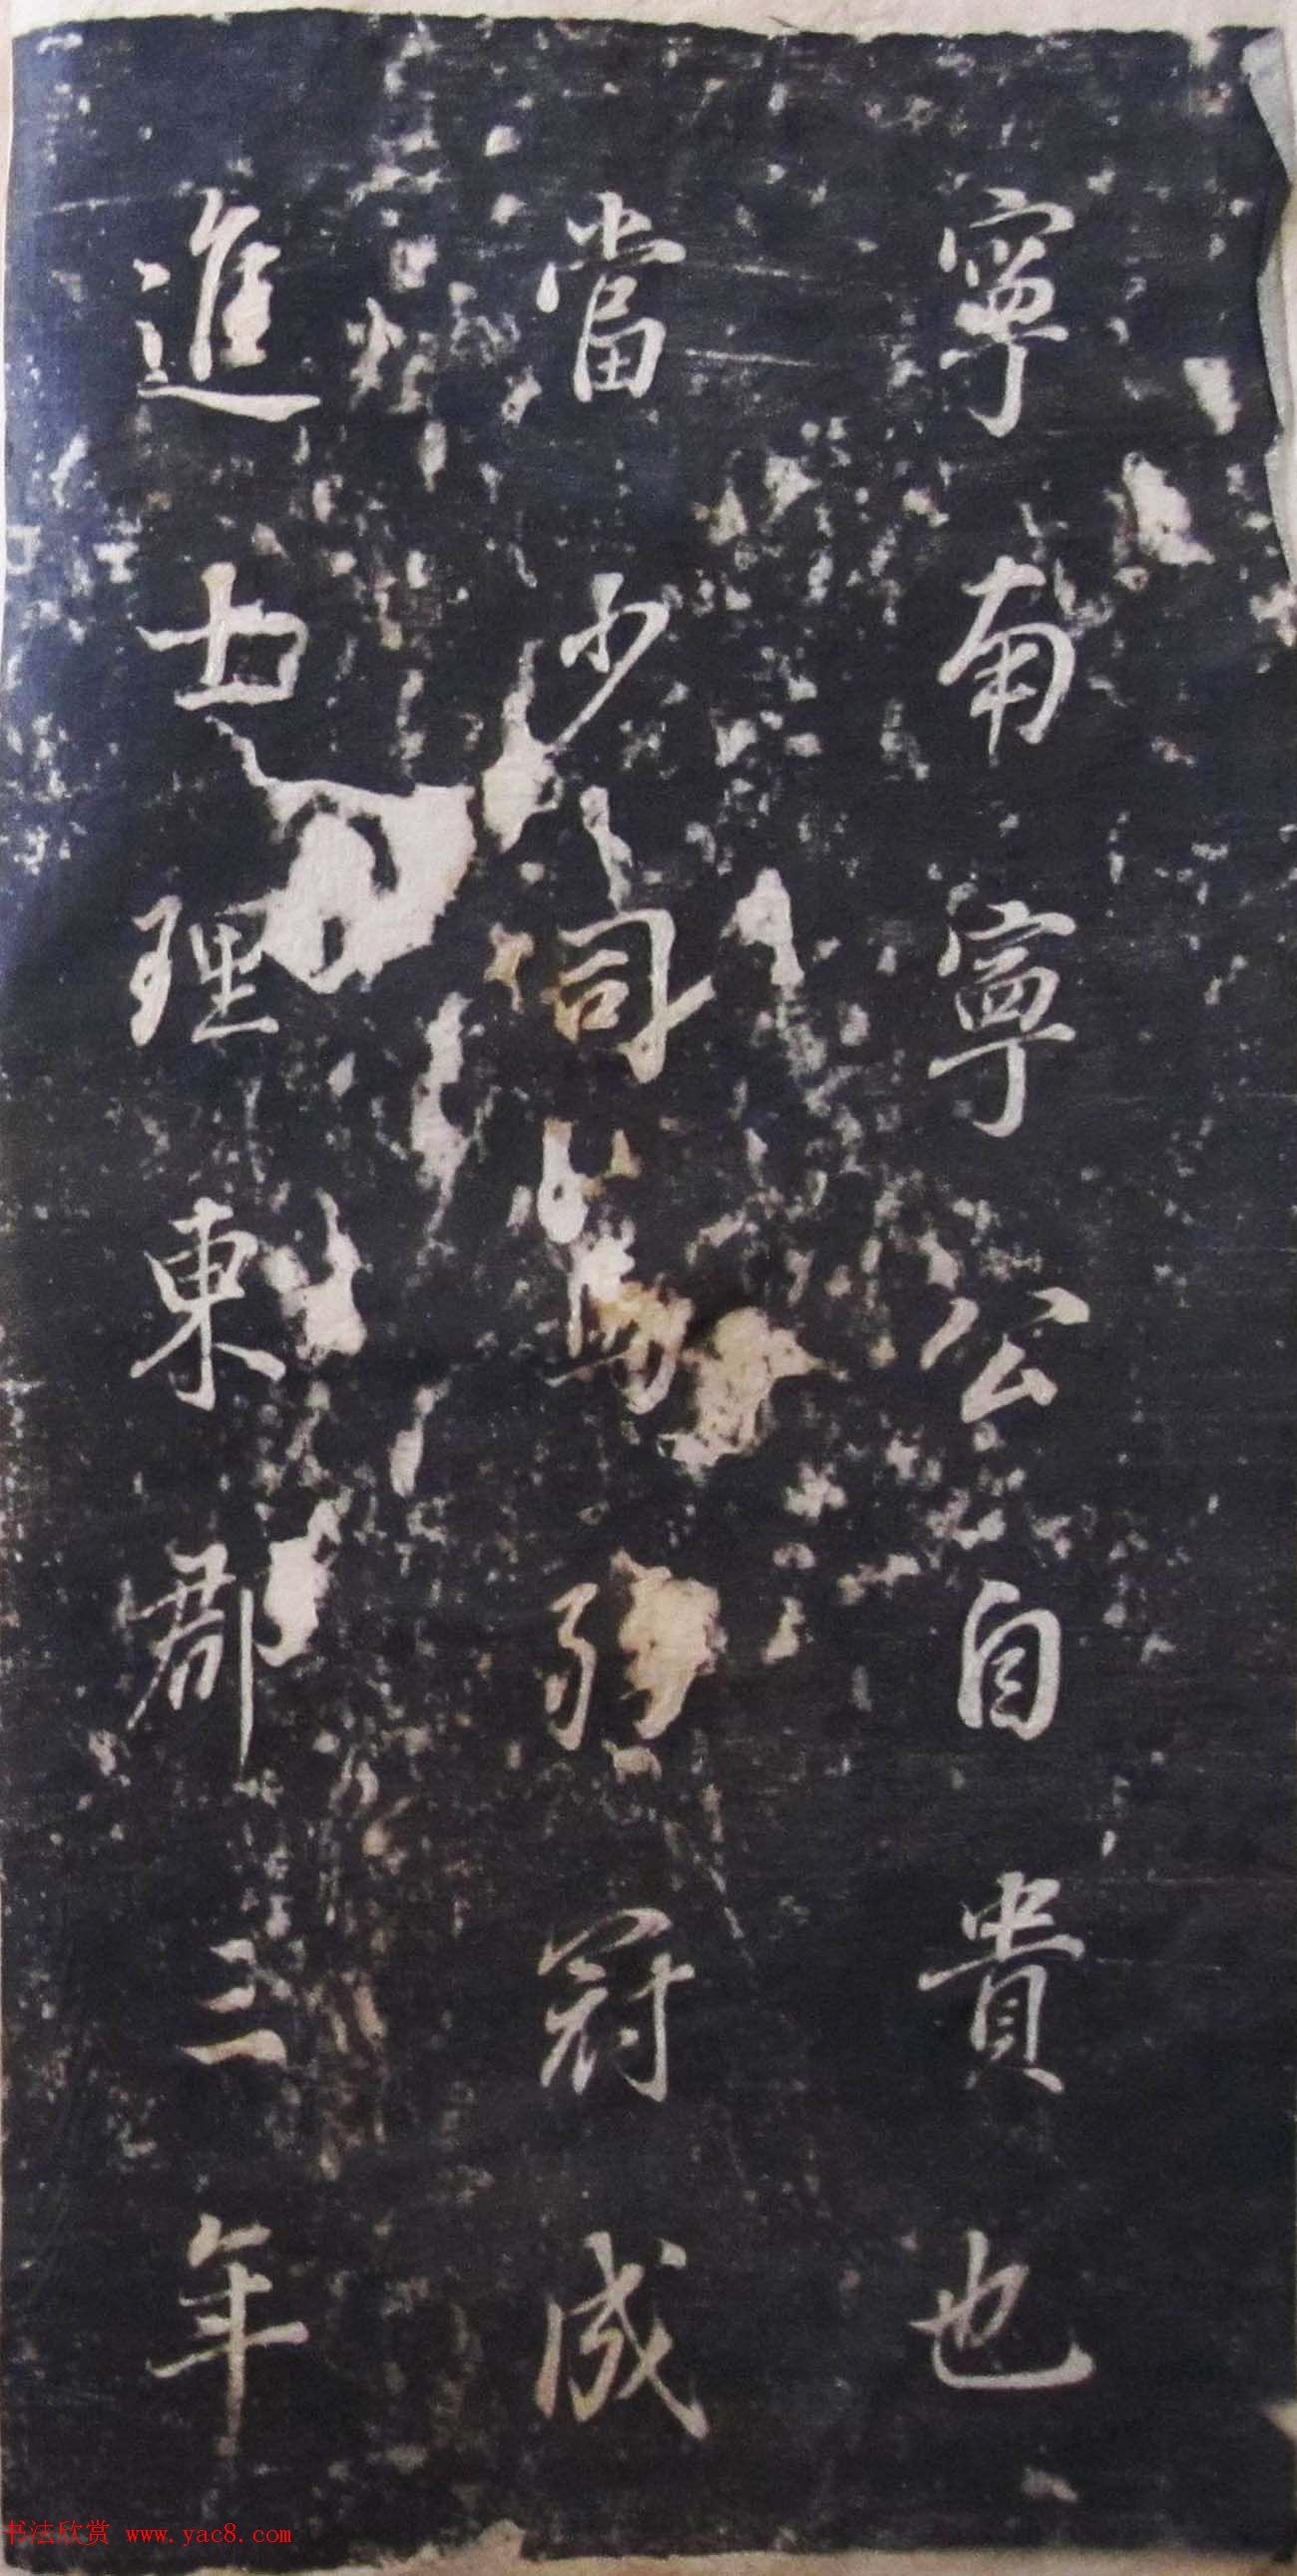 寧南寧公自貴也
當少司馬弱冠成
進士理東郡三年
书法欣赏 www.yac8.com